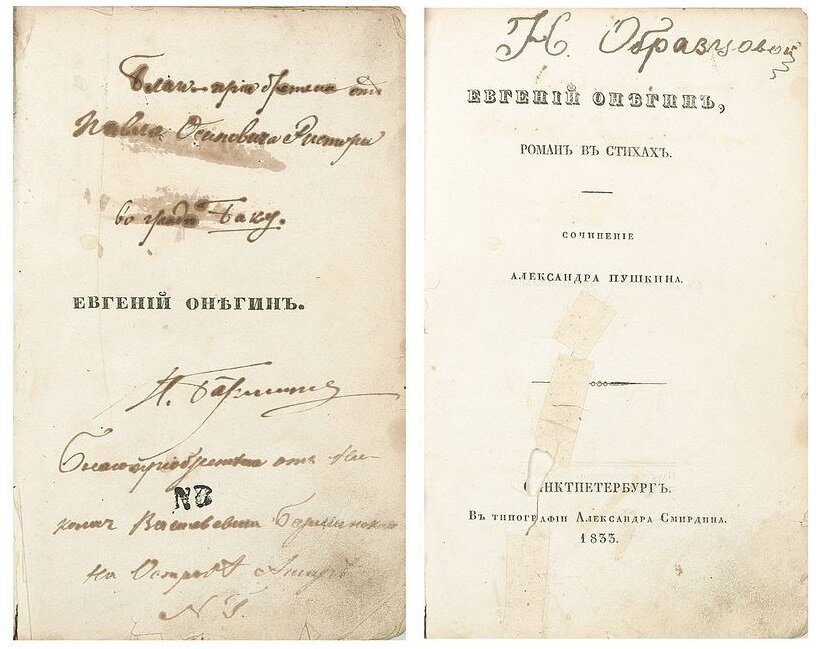 Благопріобретена отъ
Павла Осиповича Ристори
во градѣ Баку.
ЕВГЕНІЙ ОНѢГИНЪ.
Н.
Благопріобретена отъ Ни-
NB
колая Васильевича
На Островѣ
Н. Образцовой
ЕВГЕНІЙ ОНѢГИНЪ,
РОМАНЪ ВЪ СТИХАХЪ.
СОЧИНЕНІЕ
АЛЕКСАНДРА ПУШКИНА.
САНКТПЕТЕРБУРГЪ.
Въ типографіи Александра Смирдина.
1833.